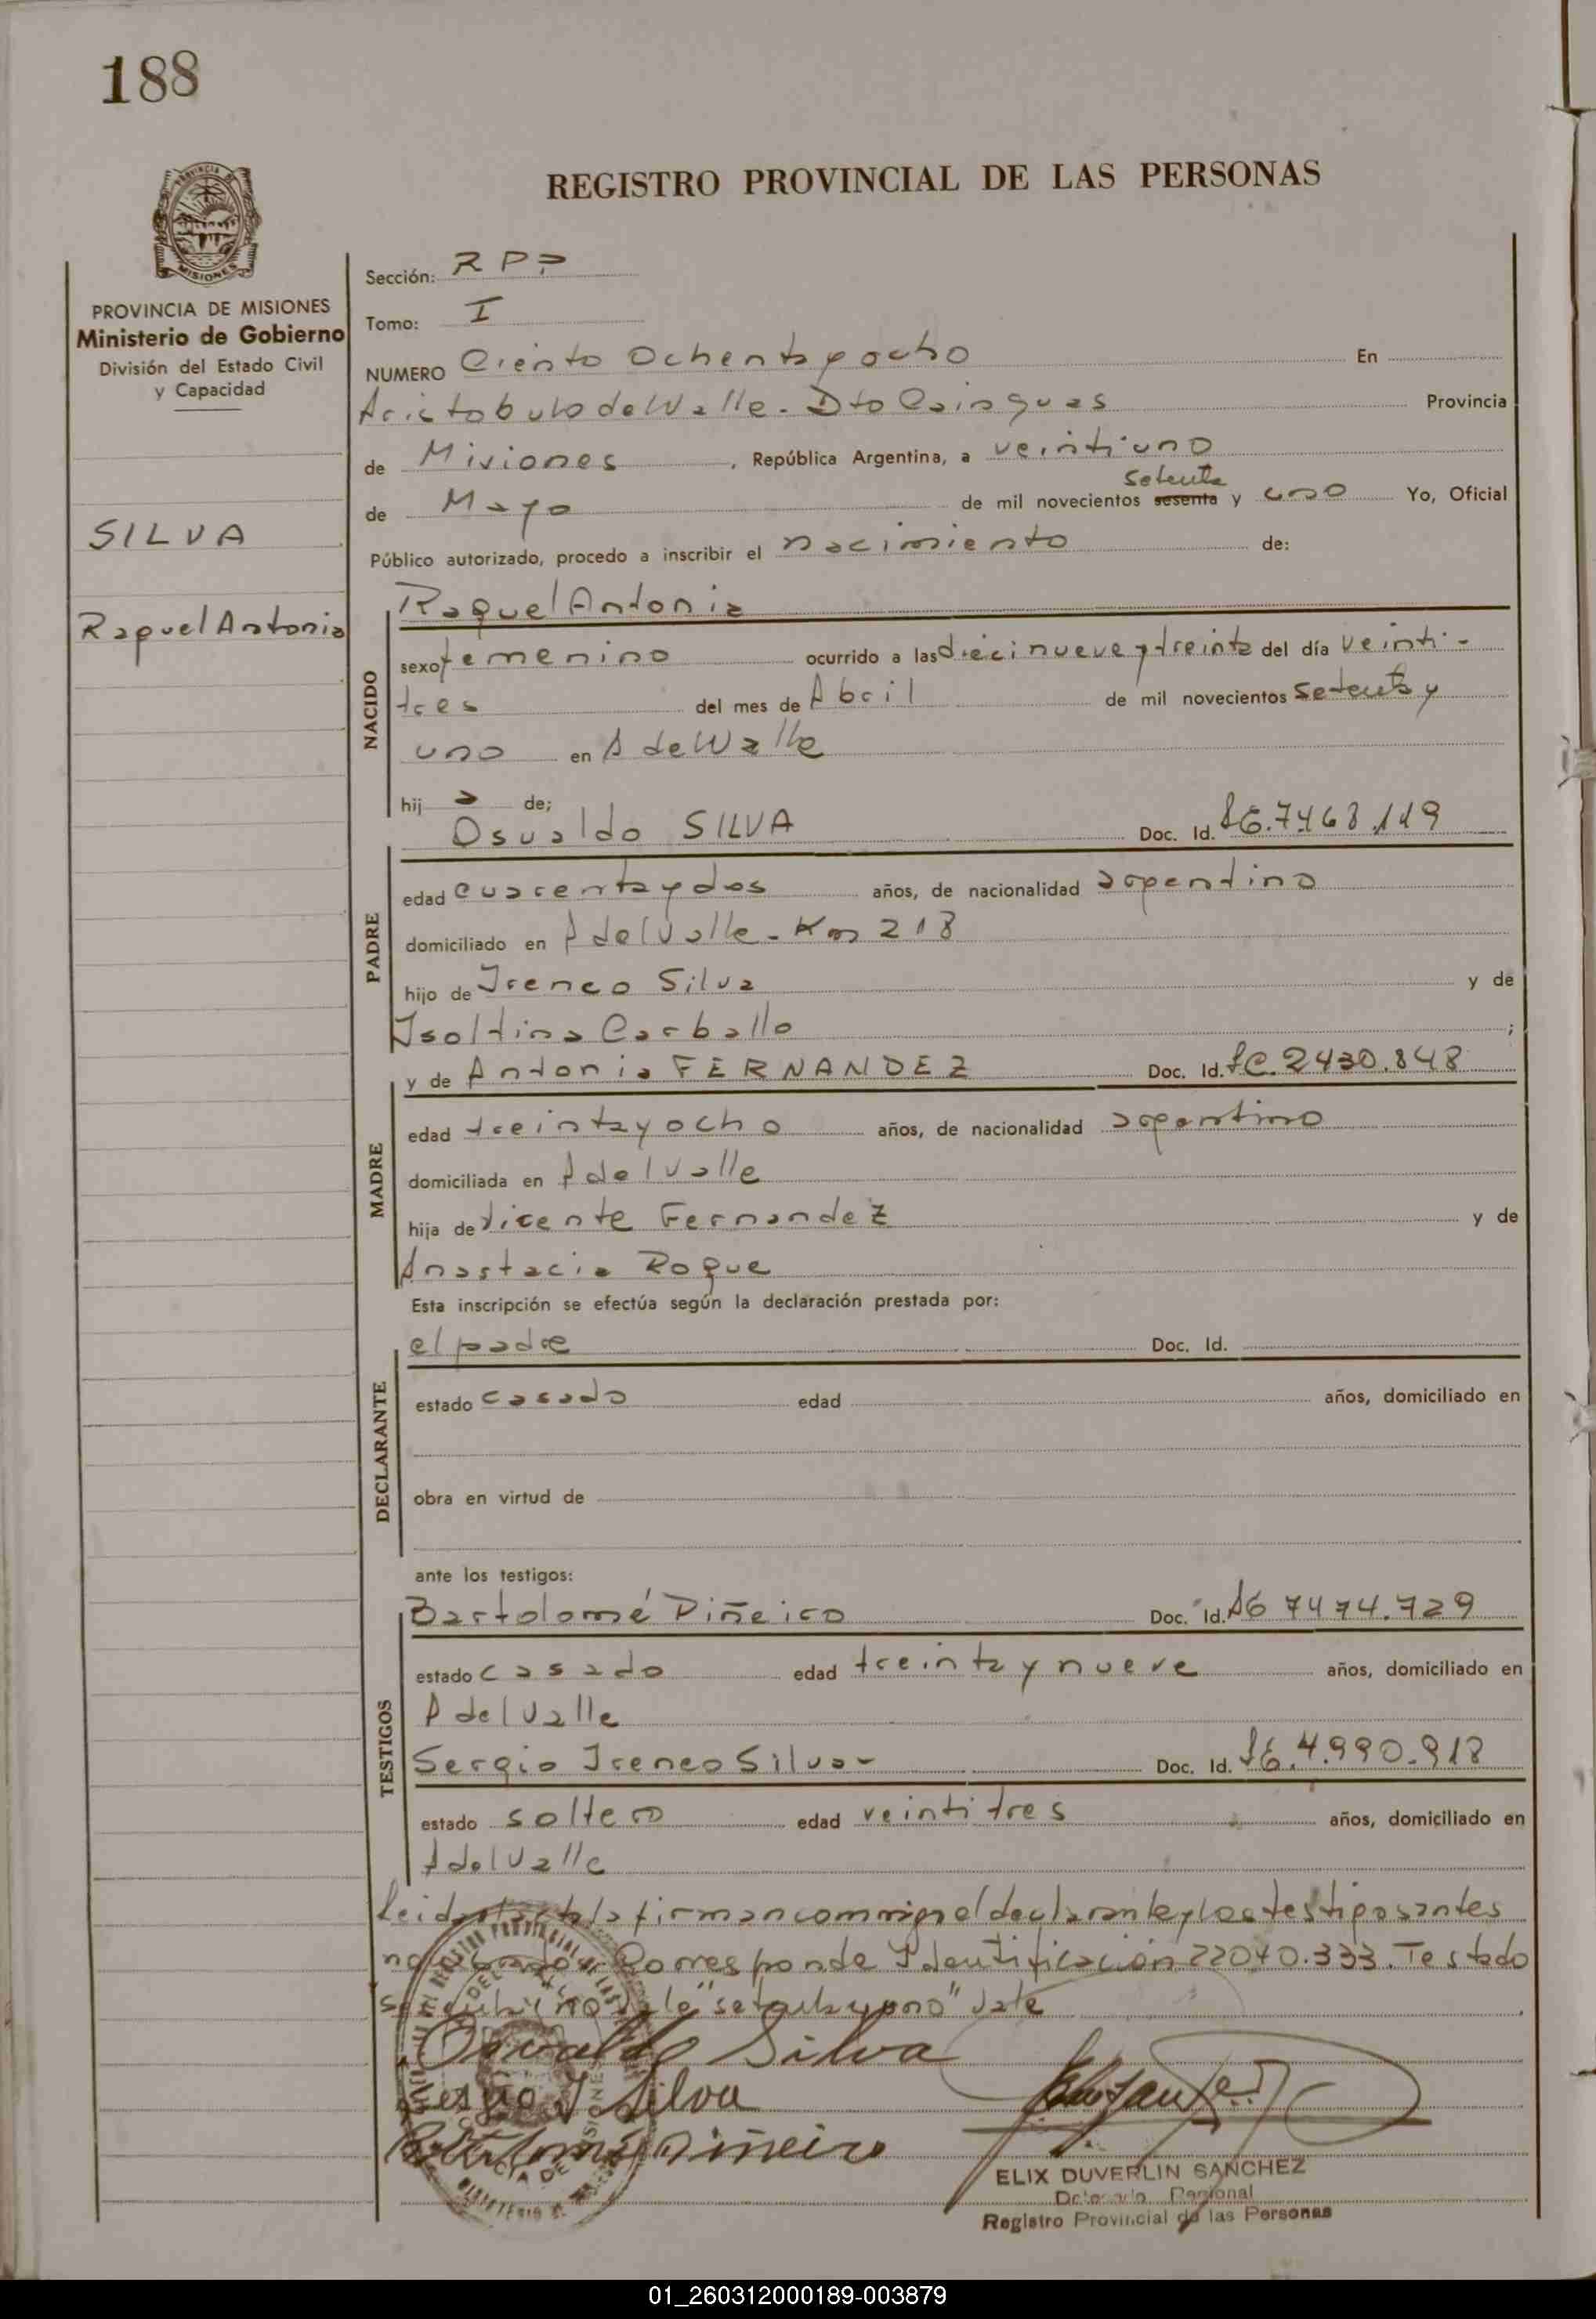 188
REGISTRO PROVINCIAL DE LAS PERSONAS
PROVINCIA DE MISIONES
Ministerio de Gobierno
División del Estado Civil
y Capacidad
SILVA
Raquel Antonia
Sección: R P P
Tomo: I
NUMERO Ciento Ochenta y ocho En
Aristobulo del Valle - Dto Cainguas Provincia
de Misiones, República Argentina, a veintiuno
setenta
de Mayo de mil novecientos sesenta y uno Yo, Oficial
Público autorizado, procedo a inscribir el nacimiento de:
NACIDO
Raquel Antonia
sexo femenino ocurrido a las diecinueve y treinta del día veinti-
tres del mes de Abril de mil novecientos setenta y
uno en A del Valle
hij a de;
PADRE
Osvaldo SILVA Doc. Id. 7.468.119
edad cuarenta y dos años, de nacionalidad argentino
domiciliado en A del Valle - Km 218
hijo de Ireneo Silva y de
Isoltina Carballo ;
MADRE
y de Antonia FERNANDEZ Doc. Id. LC. 2430.848
edad treinta y ocho años, de nacionalidad argentino
domiciliada en A del Valle
hija de Vicente Fernandez y de
Anastacia Roque
Esta inscripción se efectúa según la declaración prestada por:
DECLARANTE
el padre Doc. Id.
estado casado edad años, domiciliado en
obra en virtud de
ante los testigos:
TESTIGOS
Bartolomé Piñeiro Doc. Id. 7474.729
estado casado edad treinta y nueve años, domiciliado en
A del Valle
Sergio Ireneo Silva- Doc. Id. 4.990.918
estado soltero edad veintitres años, domiciliado en
A del Valle
Leida el acta la firman conmigo el declarante y los testigos antes
Corresponde Identificación 22040.333. Testado
"setenta y uno" Vale
Osvaldo Silva
Sergio I Silva
Bartolomé Piñeiro
ELIX DUVERLIN SANCHEZ
Delegado Regional
Registro Provincial de las Personas
01_260312000189-003879